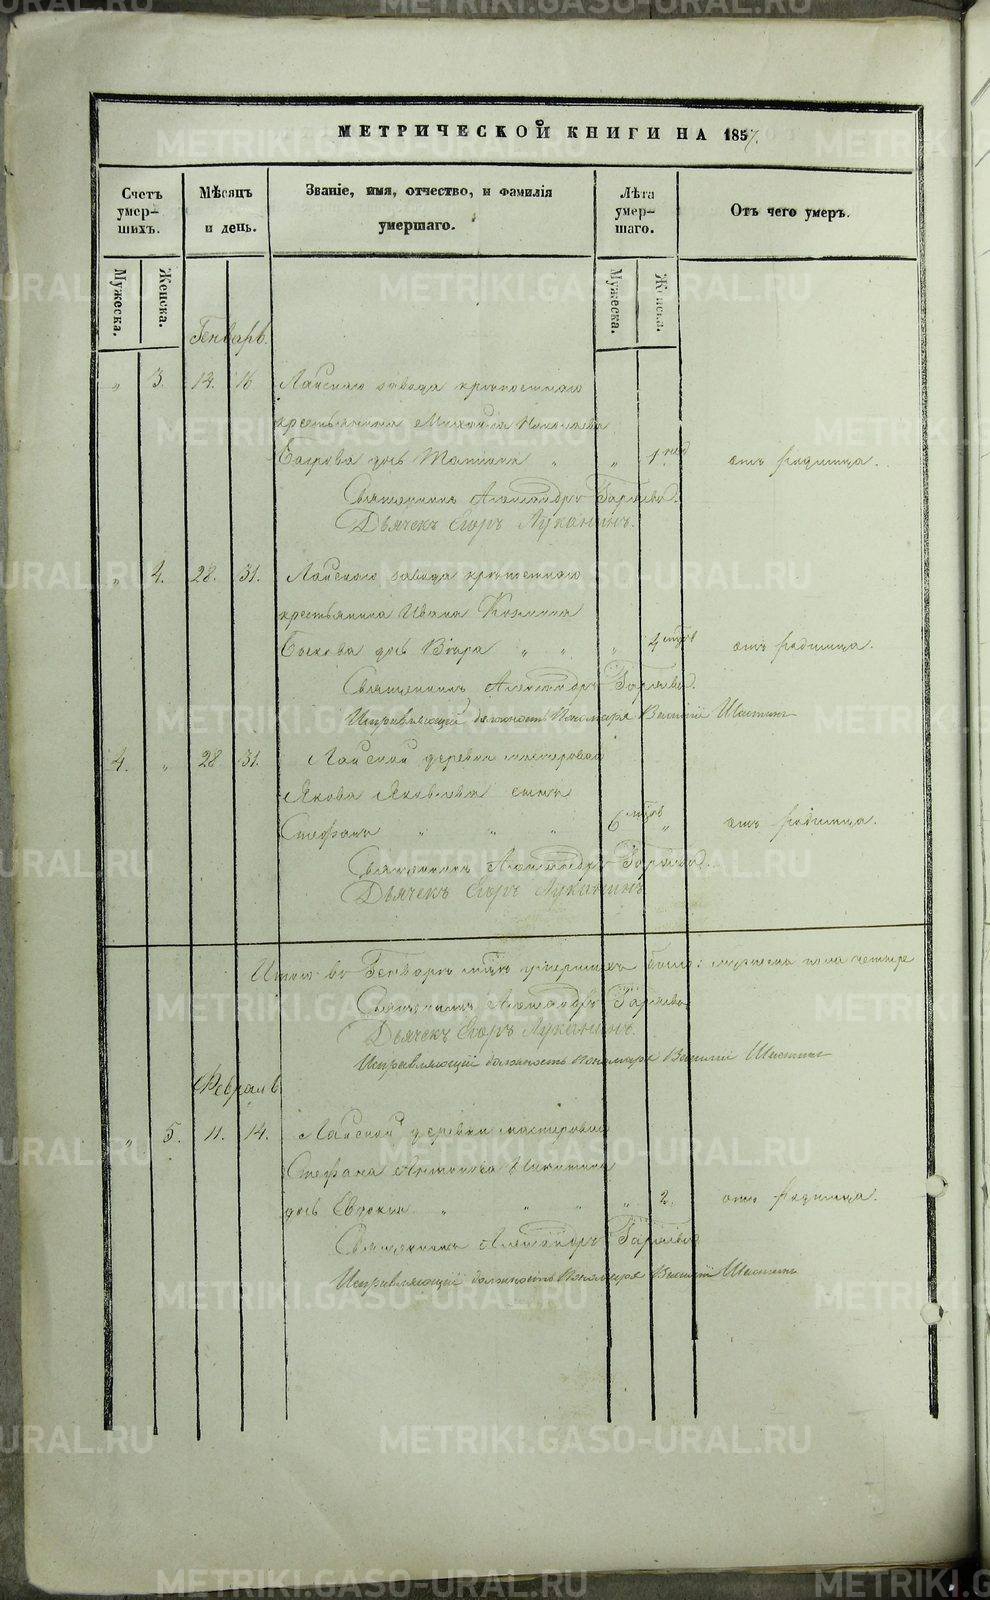 МЕТРИЧЕСКОЙ КНИГИ НА 1857.
Счетъ умер-шихъ.
Мѣсяцъ и день.
Званіе, имя, отчество, и фамилія умершаго.
Лѣта умер-шаго.
Отъ чего умеръ.
Мужеска.
Женска.
Мужеска.
Женска.
Генварь.
„ 3. 14. 16 Лайскаго завода крѣпостнаго
крестьянина Михаила Николаева
дочь Татіана „ „ 1 нед отъ родимца.
Священникъ Александръ Гаряевъ.
Дьячекъ Егоръ Луканинъ.
„ 4. 28. 31. Лайскаго завода крѣпостнаго
крестьянина Ивана Козмина
Быкова дочь Вѣра „ „ „ 4 мцовъ отъ родимца.
Священникъ Александръ Гаряевъ.
Исправляющій должность Пономаря Василій Шастинъ
4. „ 28 31. Лайской деревни мастероваго
Якова Яковлева сынъ
Стефанъ „ „ „ 6 мцовъ „ отъ родимца.
Священникъ Александръ Гаряевъ.
Дьячекъ Егоръ Луканинъ
Итого въ Генварѣ мцѣ умершихъ было: мужеска пола четыре
Священникъ Александръ Гаряевъ
Дьячекъ Егоръ Луканинъ.
Исправляющій должность Пономаря Василій Шастинъ
Февраль
„ 5. 11. 14. Лайской деревни мастероваго
Стефана Антонова Никитина
дочь Евдокія „ „ „ „ 2. отъ родимца.
Священникъ Александръ Гаряевъ
Исправляющій должность Пономаря Василій Шастинъ
METRIKI.GASO-URAL.RU